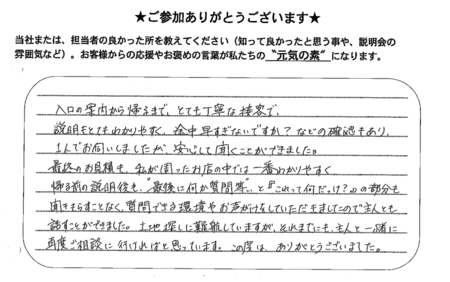 ★ご参加ありがとうございます★
当社または、担当者の良かった所を教えてください（知って良かったと思う事や、説明会の
雰囲気など）。お客様からの応援やお褒めの言葉が私たちの〝元気の素〟になります。
入口の案内から帰るまで、とても丁寧な接客で、
説明もとてもわかりやすく、途中早すぎないですか？などの確認もあり、
1人でお伺いしましたが、安心して聞くことができました。
最終のお見積も、私が回ったお店の中では一番わかりやすく、
帰る前の説明後も、"最後に何か質問等"…と『これって何だっけ？』の部分も
聞きもらすことなく、質問できる環境やお声がけをしていただきましたので主人とも
話すことができました。土地探しに難航していますが、それまでにも、主人と一緒に
再度ご相談に行ければと思っています。この度は、ありがとうございました。